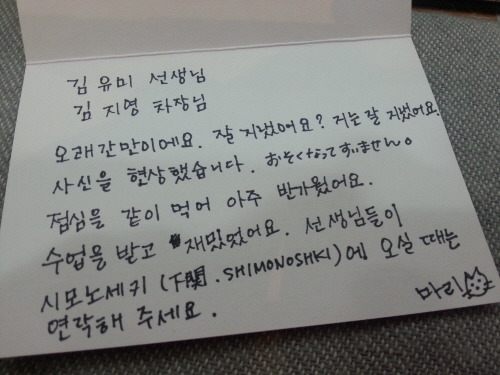 김 유미 선생님
김 지영 차장님
오래간만이에요. 잘 지냈어요? 저는 잘 지냈어요.
사신을 현상했습니다. おそくなってすいません。
점심을 같이 먹어 아주 반가웠어요.
수업을 받고 재밌었어요. 선생님들이
시모노세키 (下関. SHIMONOSHKI)에 오실 때는
연락해 주세요.
마리